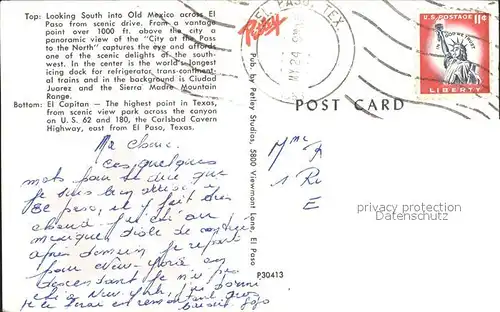 Top: Looking South into Old Mexico across El
Paso from scenic drive. From a vantage
point over 1000 ft. above the city a
panoramic view of the "City at the Pass
to the North" captures the eye and affords
one of the scenic delights of the south-
west. In the center is the world's longest
icing dock for refrigerator, trans-continent-
al trains and in the background is Ciudad
Juarez and the Sierra Madre Mountain
Range.
Bottom: El Capitan — The highest point in Texas,
from scenic view park across the canyon
on U. S. 62 and 180, the Carlsbad Cavern
Highway, east from El Paso, Texas.
ces quelques
mots pour te dire que
je suis bien arrivé à
El Paso, et il fait très
chaud. J'ai été au
mexique, drôle de contrée
après demain je repart
pour New-York en
descendant je n'ai pas
été à New-York, j'ai dormi
dans le train
gros
Jojo
Petley
Pub. by Petley Studios, 5800 Viewmont Lane, El Paso
P30413
EL PASO, TEX
24
POST CARD
U.S. POSTAGE 11¢
IN GOD WE TRUST
LIBERTY
Mme
R
1 Ru
E
privacy protection
Datenschutz